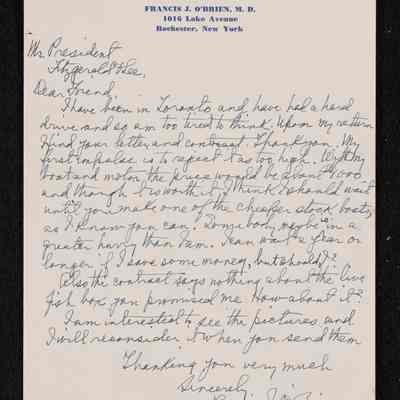 FRANCIS J. O'BRIEN, M. D.
1016 Lake Avenue
Rochester, New York
Mr. President
Fitzgerald & Lee,
Dear Friend,
I have been in Toronto and have had a hard
drive and so am too tired to think. Upon my return
I find your letter and contract. Thank you. My
first impulse is to reject it as too high. With my
boat and motor the price would be about 1000
and though it is worth it, I think I should wait
until you make one of the cheaper stock boats,
as I know you can. Somebody maybe is in a
greater hurry than I am. I can wait a year or
longer if I save some money, but should I?
Also the contract says nothing about the live
fish box you promised me. How about it?
I am interested to see the pictures and
I will reconsider it when you send them
Thanking you very much
Sincerely